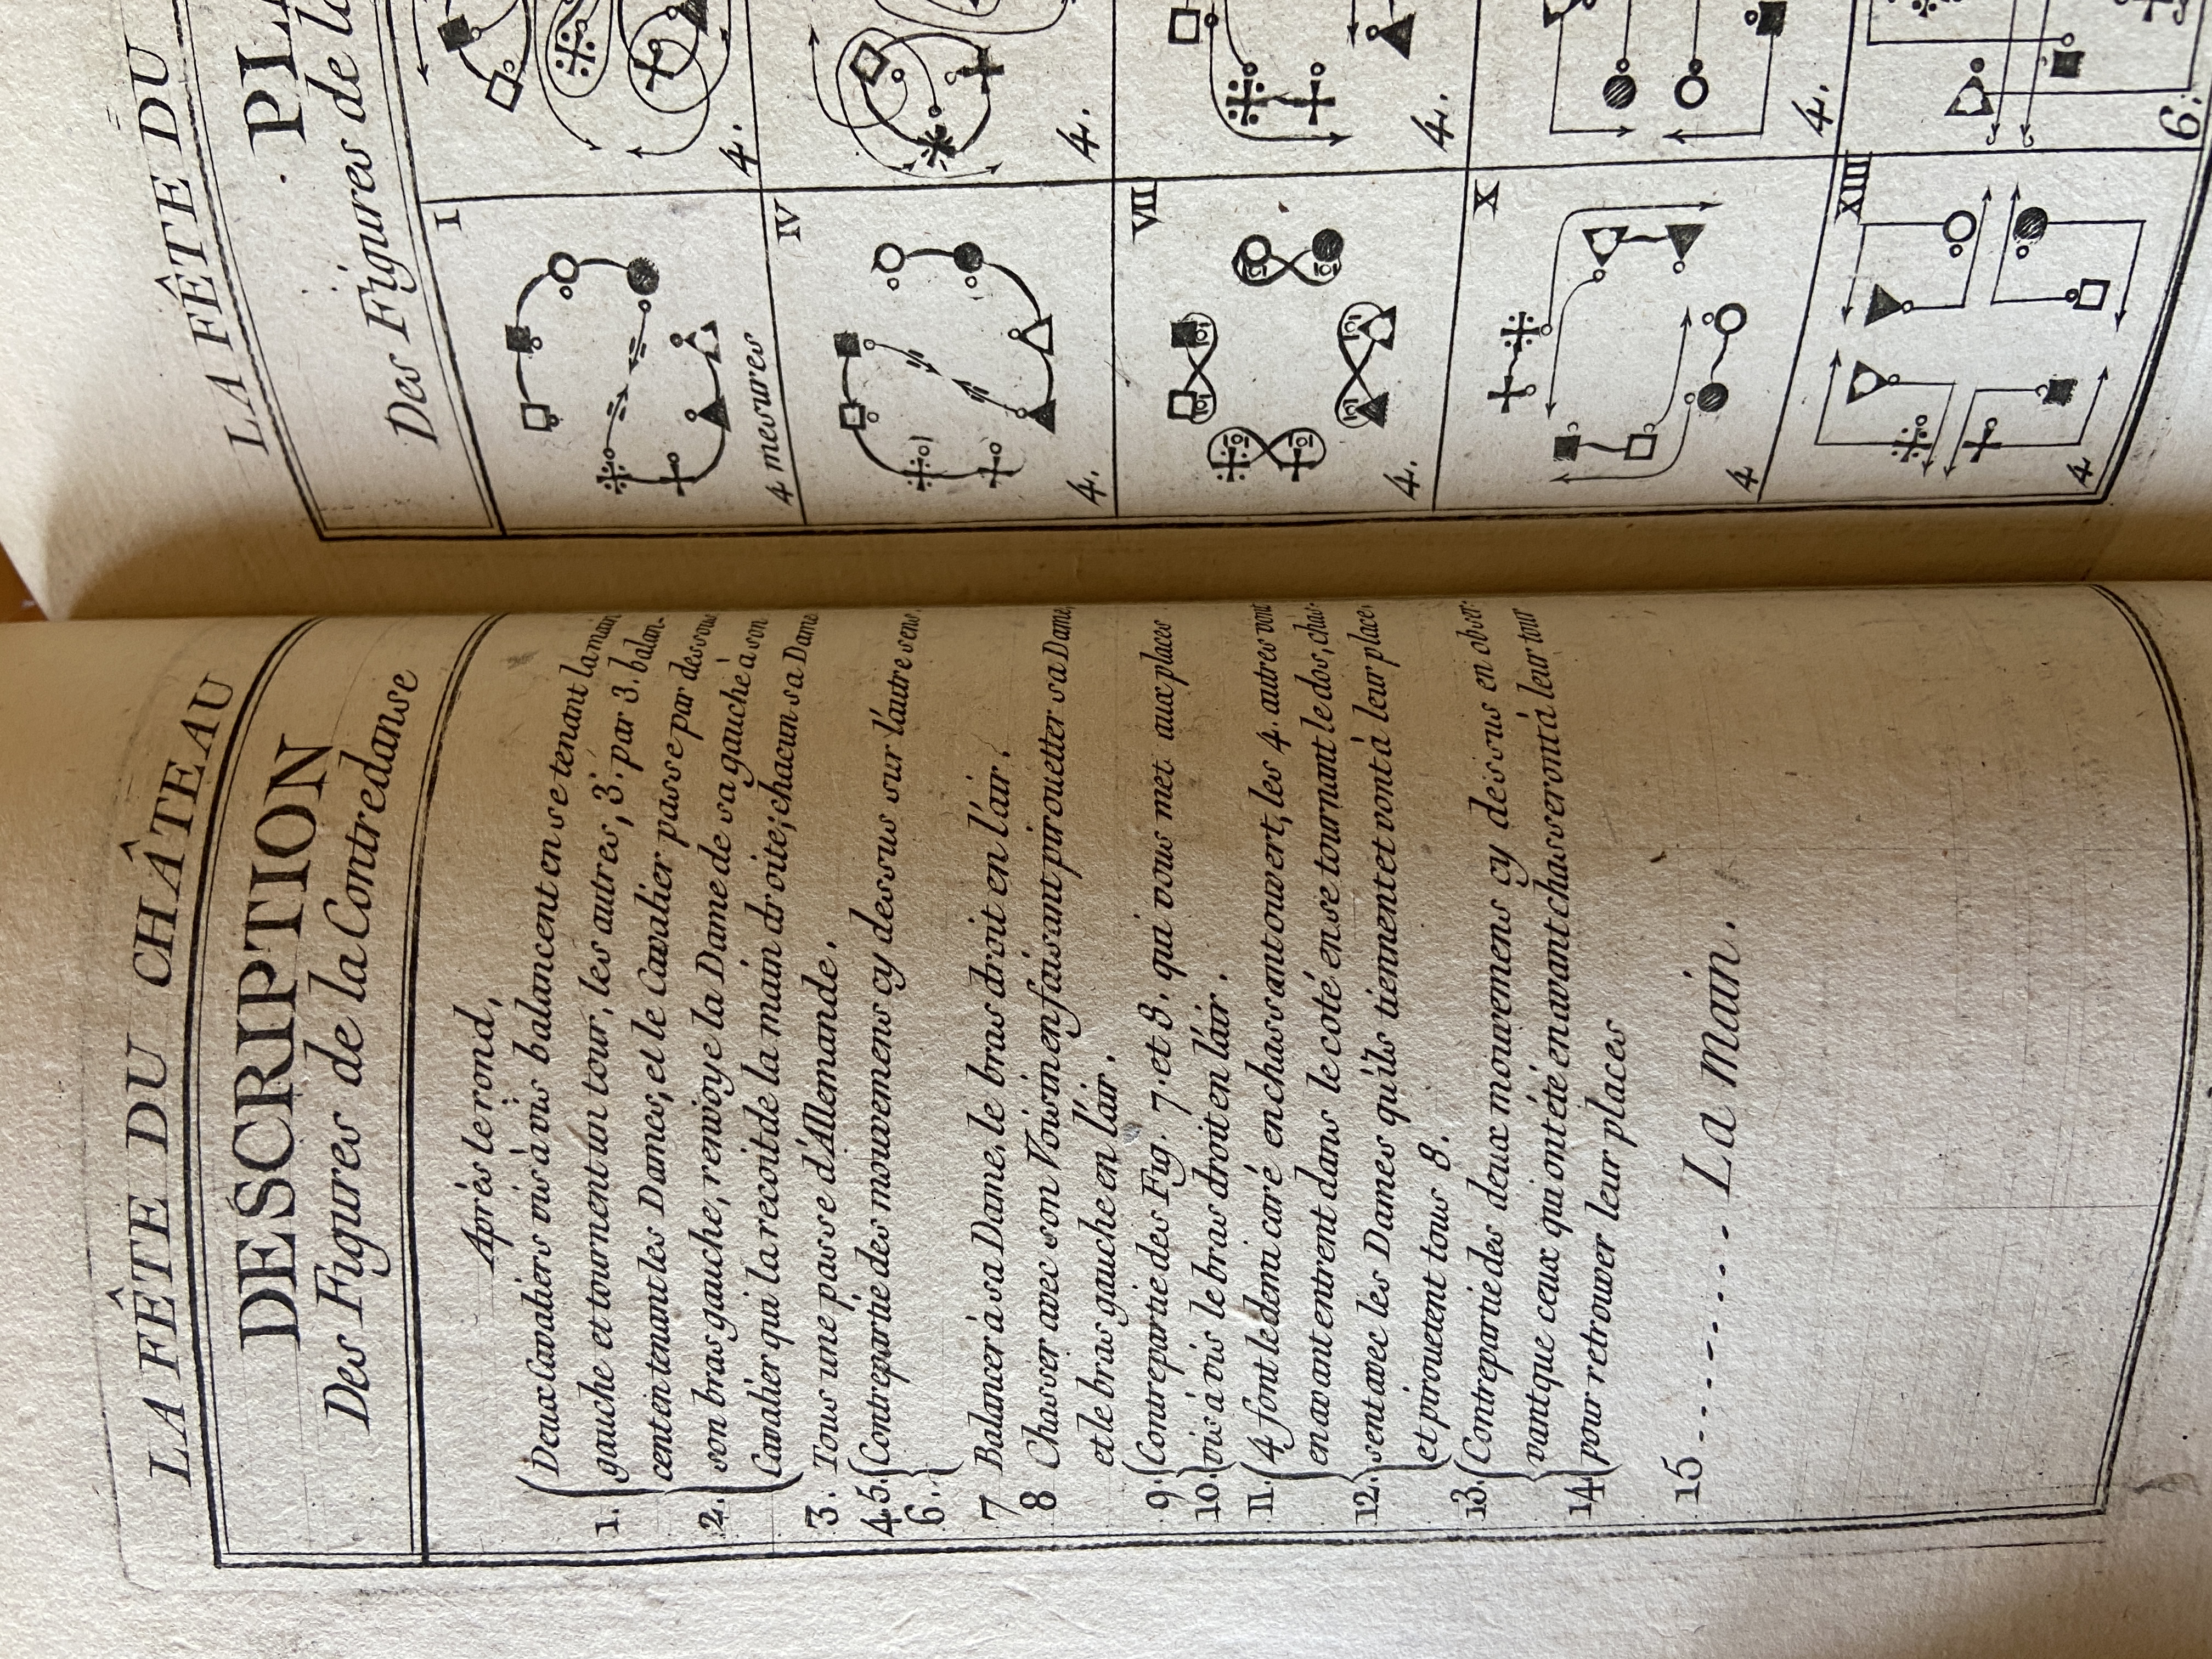 LA FÊTE DU CHÂTEAU
DESCRIPTION
Des Figures de la Contredanse
Après le rond,
1. Deux Cavaliers vis à vis balancent en se tenant la main
gauche et tournent un tour, les autres, 3. par 3. balan-
cent en tenant les Dames, et le Cavalier passe par dessous
2. son bras gauche, renvoye la Dame de sa gauche à son
Cavalier qui la recoit de la main droite; chacun sa Dame
3. Tous une passe d'Allemande.
4.5. Contrepartie des mouvemens cy dessus sur l'autre sens.
6.
7 Balancer à sa Dame, le bras droit en l'air.
8 Chasser avec son Voisin en faisant pirouetter sa Dame,
et le bras gauche en l'air.
9. Contrepartie des Fig. 7. et 8. qui vous met aux places
10. vis à vis le bras droit en l'air.
11. 4 font le demi caré en chassant ouvert, les 4. autres vont
en avant entrent dans le coté en se tournant le dos, chas-
12. sent avec les Dames qu'ils tiennent et vont à leur place,
et pirouetent tous 8.
13. Contrepartie des deux mouvemens cy dessus en obser-
vant que ceux qui ont été en avant chasseront à leur tour
14. pour retrouver leur places
15. . . . . . . . . La Main.
LA FÊTE DU
Des Figures de la
I
4 mesures
4.
IV
4.
4.
VII
4.
4.
X
4
4.
XIII
4
6.